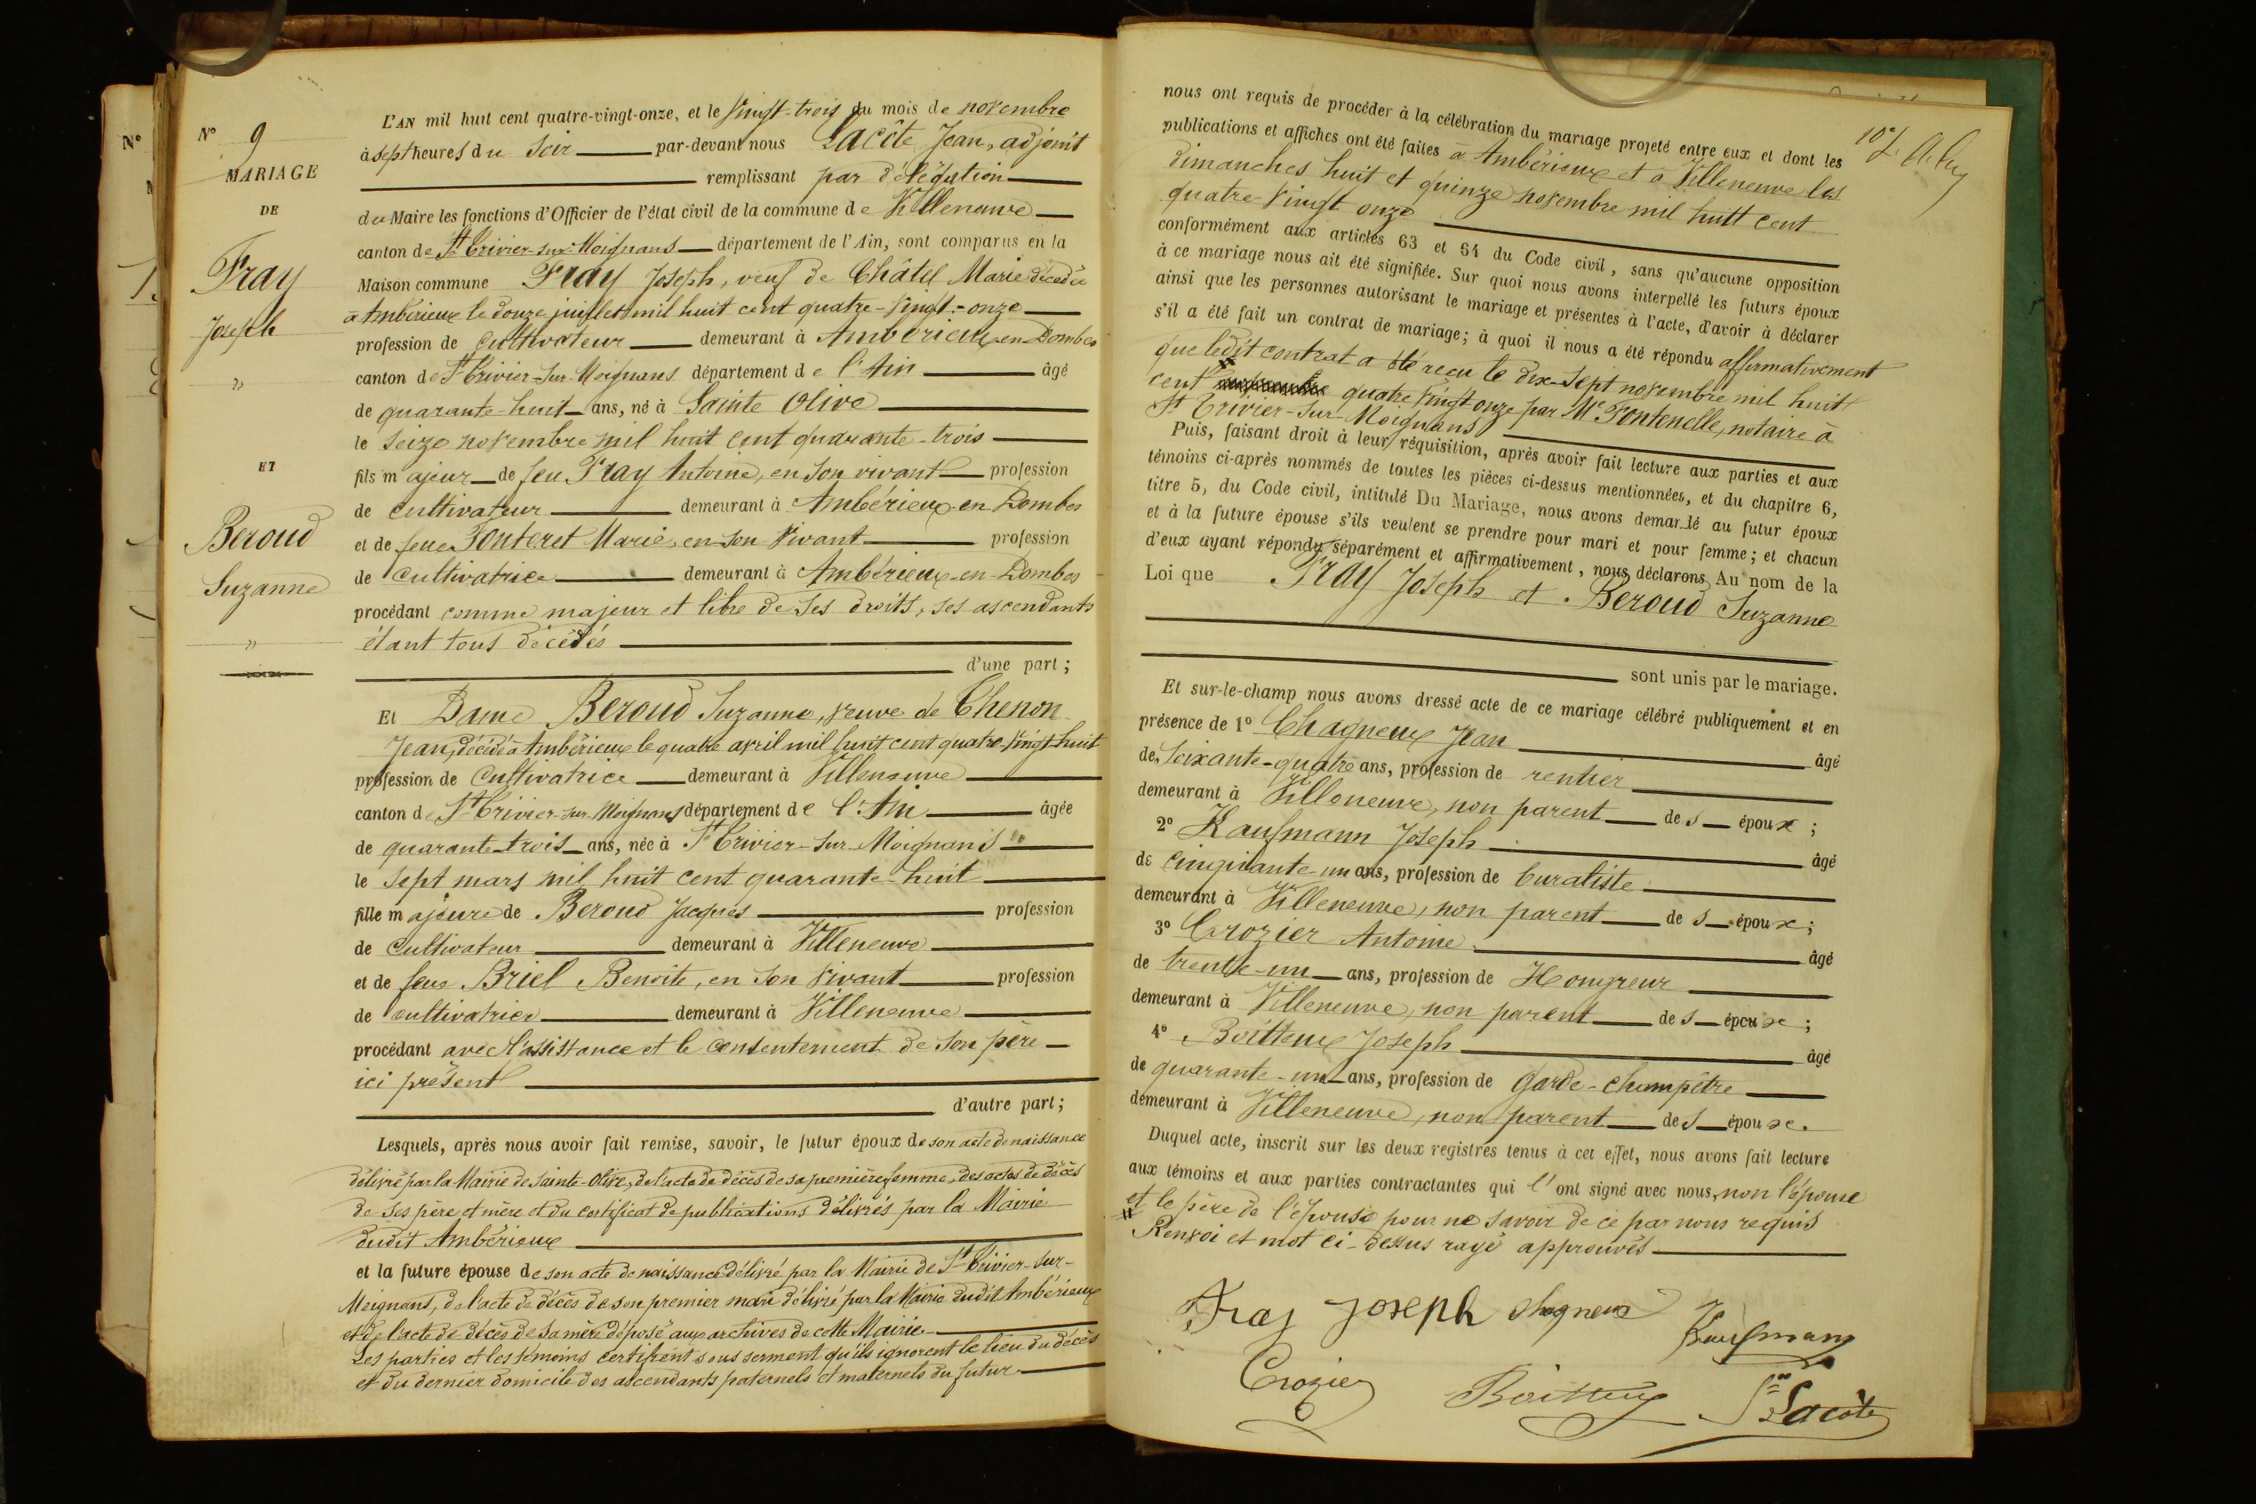 N° 9
MARIAGE
DE
Fray
Joseph
"
ET
Beroud
Suzanne
"
L'AN mil huit cent quatre-vingt-onze, et le vingt-trois du mois de novembre
à sept heures du soir par-devant nous Lacôte Jean, adjoint
remplissant par délégation
du Maire les fonctions d'Officier de l'état civil de la commune de Villeneuve
canton de St Trivier-sur-Moignans département de l'Ain, sont comparus en la
Maison commune Fray Joseph, veuf de Châtel Marie décedée
à Ambérieux le douze juillet mil huit cent quatre-vingt-onze
profession de cultivateur demeurant à Ambérieux-en-Dombes
canton de St Trivier-sur-Moignans département de l'Ain âgé
de quarante-huit ans, né à Sainte Olive
le seize novembre mil huit cent quarante-trois
fils majeur de feu Fray Antoine, en son vivant profession
de cultivateur demeurant à Ambérieux-en-Dombes
et de feue Fonteret Marie, en son vivant profession
de cultivatrice demeurant à Ambérieux-en-Dombes
procédant comme majeur et libre de ses droits, ses ascendants
étant tous décédés
d'une part ;
Et Dame Beroud Suzanne, veuve de Chenon
Jean, décédé à Ambérieux le quatre avril mil huit cent quatre-vingt-huit
profession de cultivatrice demeurant à Villeneuve
canton de St Trivier-sur-Moignans département de l'Ain âgée
de quarante-trois ans, née à St Trivier-sur-Moignans
le sept mars mil huit cent quarante-huit
fille majeure de Beroud Jacques profession
de cultivateur demeurant à Villeneuve
et de feue Briel Benoite, en son vivant profession
de cultivatrice demeurant à Villeneuve
procédant avec l'assistance et le consentement de son père
ici présent
d'autre part ;
Lesquels, après nous avoir fait remise, savoir, le futur époux de son acte de naissance
délivré par la Mairie de Sainte-Olive, de l'acte de décès de sa première femme, des actes de décès
de ses père et mère et du certificat de publications délivrés par la Mairie
dudit Ambérieux
et la future épouse de son acte de naissance délivré par la Mairie de St Trivier-sur-
Moignans, de l'acte de décès de son premier mari délivré par la Mairie dudit Ambérieux
et de l'acte de décès de sa mère déposé aux archives de cette Mairie
Les parties et les témoins certifient sous serment qu'ils ignorent le lieu du décès
et du dernier domicile des ascendants paternels et maternels du futur
nous ont requis de procéder à la célébration du mariage projeté entre eux et dont les
publications et affiches ont été faites à Ambérieux et à Villeneuve les
dimanches huit et quinze novembre mil huit cent
quatre-vingt onze
conformément aux articles 63 et 64 du Code civil, sans qu'aucune opposition
à ce mariage nous ait été signifiée. Sur quoi nous avons interpellé les futurs époux
ainsi que les personnes autorisant le mariage et présentes à l'acte, d'avoir à déclarer
s'il a été fait un contrat de mariage ; à quoi il nous a été répondu affirmativement
que ledit contrat a été reçu le dix-sept novembre mil huit
cent quatre vingt onze par Me Fontenelle, notaire à
St Trivier-sur-Moignans
Puis, faisant droit à leur réquisition, après avoir fait lecture aux parties et aux
témoins ci-après nommés de toutes les pièces ci-dessus mentionnées, et du chapitre 6,
titre 5, du Code civil, intitulé Du Mariage, nous avons demandé au futur époux
et à la future épouse s'ils veulent se prendre pour mari et pour femme ; et chacun
d'eux ayant répondu séparément et affirmativement, nous déclarons Au nom de la
Loi que Fray Joseph et Beroud Suzanne
sont unis par le mariage.
Et sur-le-champ nous avons dressé acte de ce mariage célébré publiquement et en
présence de 1° Chagneux Jean âgé
de soixante-quatre ans, profession de rentier
demeurant à Villeneuve, non parent des époux ;
2° Kaufmann Joseph âgé
de cinquante-un ans, profession de buraliste
demeurant à Villeneuve, non parent des époux ;
3° Crozier Antoine âgé
de trente-un ans, profession de Hongreur
demeurant à Villeneuve, non parent des époux ;
4° Boitteux Joseph âgé
de quarante-un ans, profession de Garde-champêtre
demeurant à Villeneuve, non parent des époux.
Duquel acte, inscrit sur les deux registres tenus à cet effet, nous avons fait lecture
aux témoins et aux parties contractantes qui l'ont signé avec nous, non l'épouse
et le père de l'épouse pour ne savoir de ce par nous requis
Renvoi et mot ci-dessus rayé approuvés
Fray joseph Chagneux
Kaufmann
Crozier Boitteux Lacôte